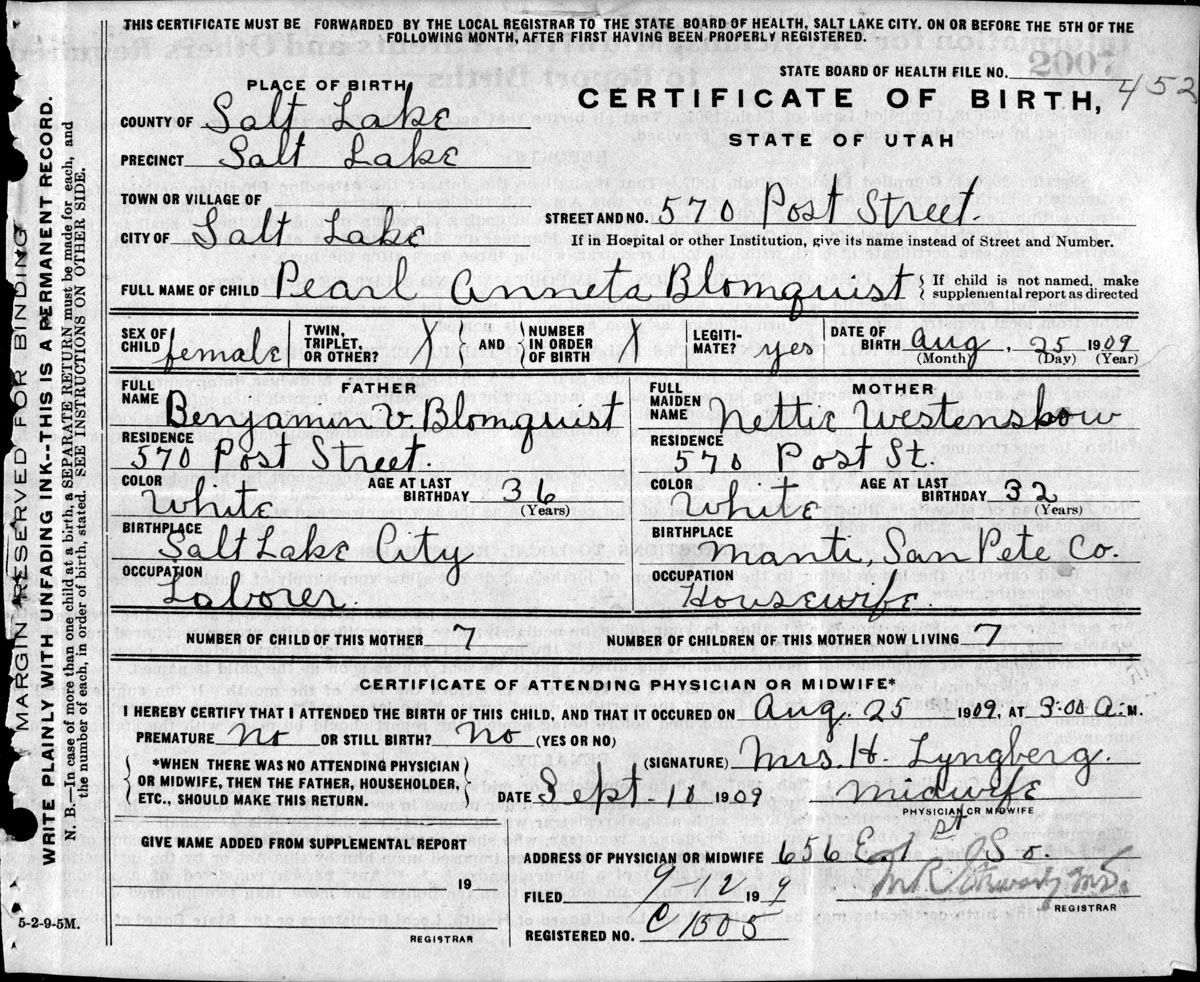 THIS CERTIFICATE MUST BE FORWARDED BY THE LOCAL REGISTRAR TO THE STATE BOARD OF HEALTH, SALT LAKE CITY. ON OR BEFORE THE 5TH OF THE
FOLLOWING MONTH, AFTER FIRST HAVING BEEN PROPERLY REGISTERED.
2007
STATE BOARD OF HEALTH FILE NO. 452
PLACE OF BIRTH
CERTIFICATE OF BIRTH,
COUNTY OF Salt Lake
STATE OF UTAH
PRECINCT Salt Lake
TOWN OR VILLAGE OF
STREET AND NO. 570 Post Street.
CITY OF Salt Lake
If in Hospital or other Institution, give its name instead of Street and Number.
FULL NAME OF CHILD Pearl Anneta Blomquist { If child is not named, make
supplemental report as directed
SEX OF CHILD female TWIN, TRIPLET, OR OTHER? AND NUMBER IN ORDER OF BIRTH LEGITI-MATE? yes DATE OF BIRTH Aug. 25 1909
(Month) (Day) (Year)
FATHER
FULL NAME Benjamin V. Blomquist
RESIDENCE
570 Post Street.
COLOR White AGE AT LAST BIRTHDAY 36
(Years)
BIRTHPLACE
Salt Lake City
OCCUPATION
Laborer.
MOTHER
FULL MAIDEN NAME Nettie Westenskow
RESIDENCE
570 Post St.
COLOR White AGE AT LAST BIRTHDAY 32
(Years)
BIRTHPLACE
Manti, San Pete Co.
OCCUPATION
Housewife.
NUMBER OF CHILD OF THIS MOTHER 7 NUMBER OF CHILDREN OF THIS MOTHER NOW LIVING 7
CERTIFICATE OF ATTENDING PHYSICIAN OR MIDWIFE*
I HEREBY CERTIFY THAT I ATTENDED THE BIRTH OF THIS CHILD, AND THAT IT OCCURED ON Aug. 25 1909, AT 3:00 A. M.
PREMATURE No OR STILL BIRTH? No (YES OR NO)
*WHEN THERE WAS NO ATTENDING PHYSICIAN
OR MIDWIFE, THEN THE FATHER, HOUSEHOLDER,
ETC., SHOULD MAKE THIS RETURN.
(SIGNATURE) Mrs. H. Lyngberg.
DATE Sept. 1909 Midwife
PHYSICIAN OR MIDWIFE
GIVE NAME ADDED FROM SUPPLEMENTAL REPORT
19
REGISTRAR
ADDRESS OF PHYSICIAN OR MIDWIFE 656 So.
FILED 9/12 199
REGISTRAR
REGISTERED NO. C 1505
5-2-9-5M.
MARGIN RESERVED FOR BINDING
WRITE PLAINLY WITH UNFADING INK--THIS IS A PERMANENT RECORD.
N. B.—In case of more than one child at a birth, a SEPARATE RETURN must be made for each, and
the number of each, in order of birth, stated. SEE INSTRUCTIONS ON OTHER SIDE.